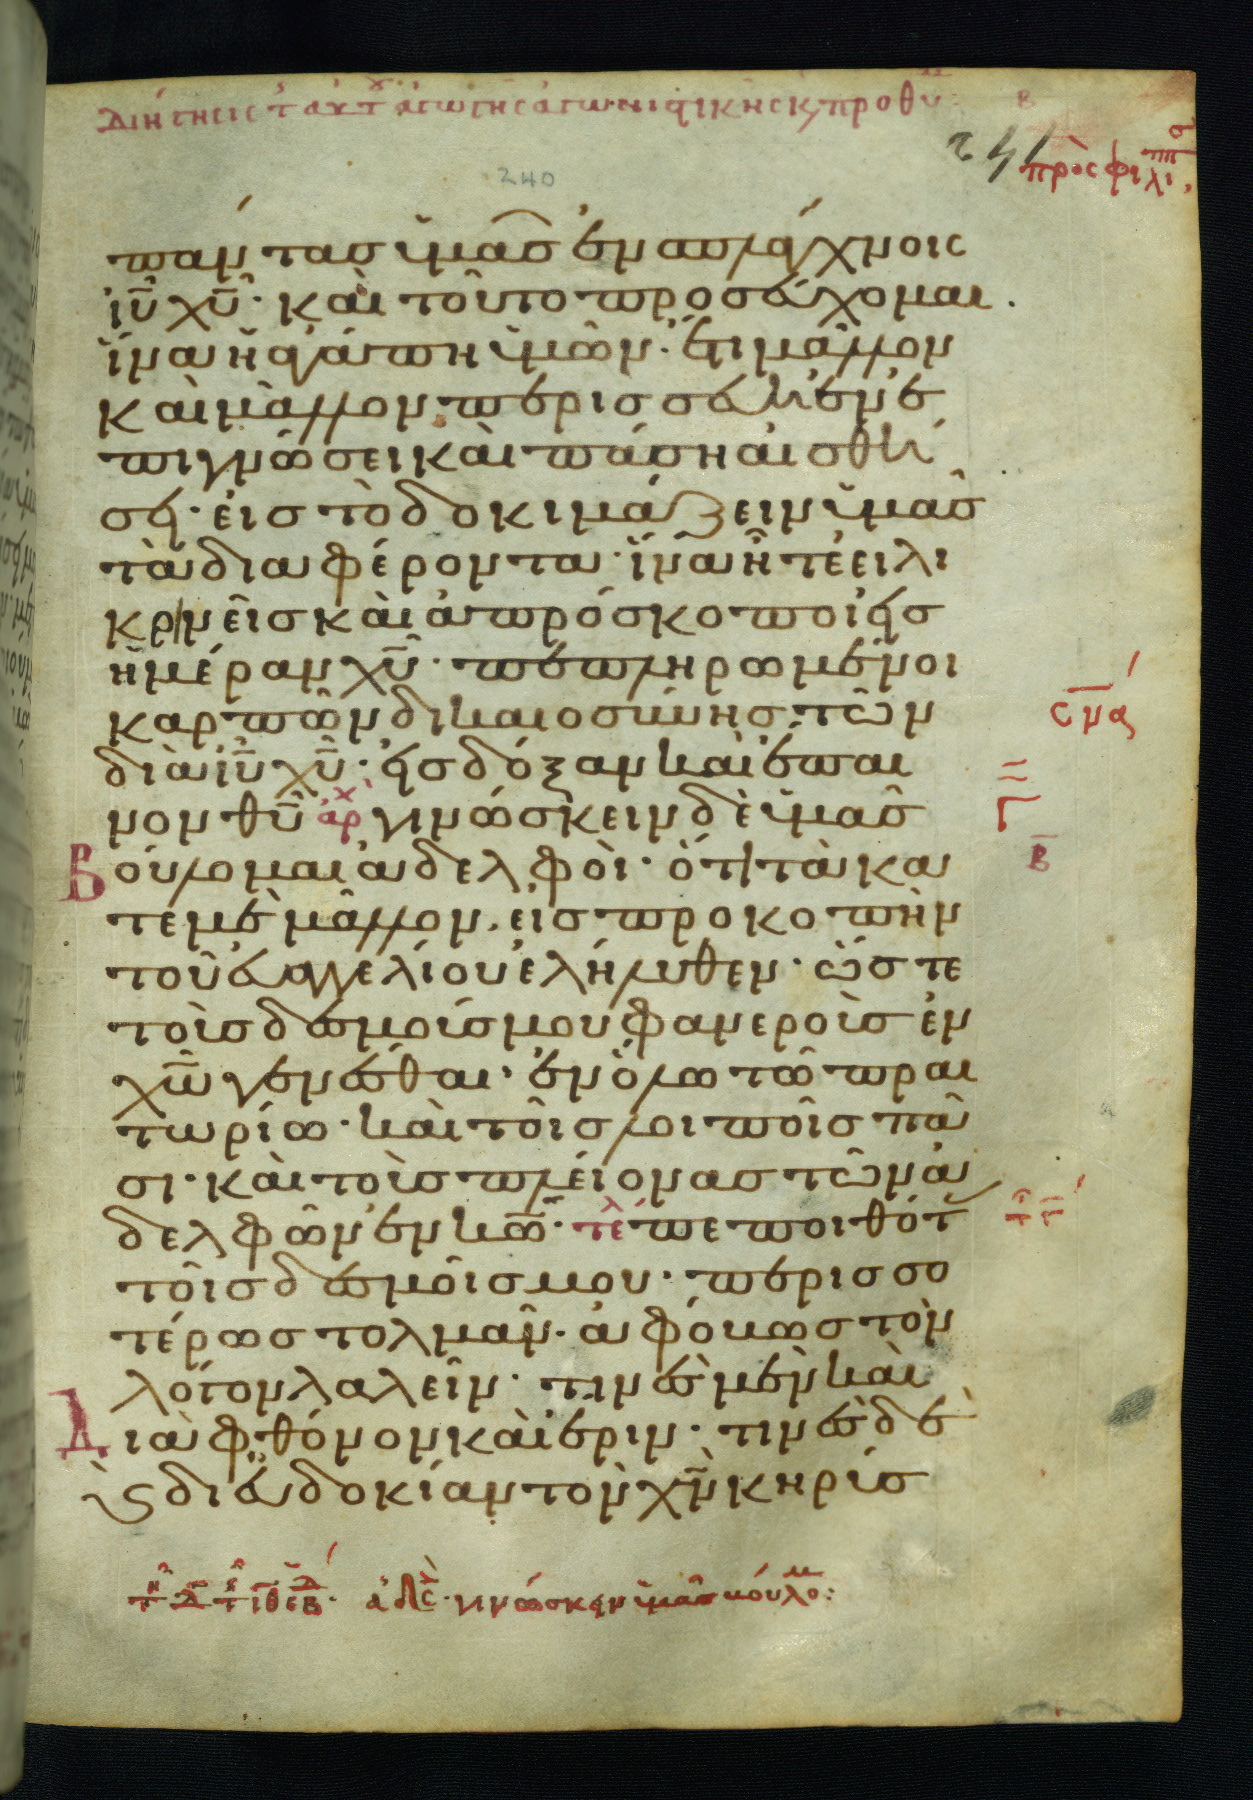 Διήγησις τ αυτ αγωγῆς ἀγωνιστικῆς κ, προθυ
β
241
πρὸς φιλιπ
240
πάντας ὑμᾶς ἐν σπλάγχνοις
ἰῦ χῦ· καὶ τοῦτο προσεύχομαι.
ἵνα ἡ ἀγάπη ὑμῶν· ἔτι μᾶλλον
καὶ μᾶλλον περισσεύη ἐν ἐ
πιγνώσει καὶ πάση αἰσθή
σει· εἰς τὸ δοκιμάζειν ὑμᾶς
τὰ διαφέροντα· ἵνα ἦτε εἰλι
κρινεῖς καὶ ἀπρόσκοποι εἰς
ἡμέραν χῦ· πεπληρωμένοι
καρπῶν δικαιοσύνης τῶν
διὰ ἰῦ χῦ· εἰς δόξαν καὶ ἔπαι
νον θῦ ἀρχ γινώσκειν δὲ ὑμᾶς
Βούλομαι ἀδελφοὶ· ὅτι τὰ κα
τ εμὲ μᾶλλον, εἰς προκοπὴν
τοῦ εὐαγγελίου ἐλήλυθεν· ὥστε
τοὺς δεσμούς μου φανεροὺς ἐν
χῶ γενέσθαι· ἐν ὅλω τῶ πραι
τωρίω· καὶ τοῖς λοιποῖς πᾶ
σι· καὶ τοὺς πλείονας τῶν ἀ
δελφῶν ἐν κῶ· τελ πεποιθότ
τοῖς δεσμοῖς μου· περισσο
τέρως τολμᾶν· ἀφόβως τὸν
λόγον λαλεῖν· τινὲς μὲν καὶ
Διὰ φθόνον καὶ ἔριν· τινὲς δὲ
κ, δι εὐδοκίαν τὸν χν κηρύσ
ς μα
Γ
β
ἀδε· γινώσκειν ὑμᾶς βούλομ: